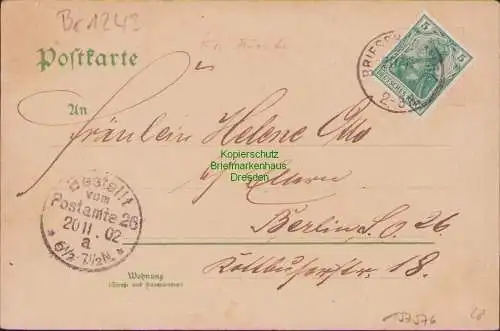 Br 1243
Postkarte
5
BRIES
2-3
DEUTSCHES REICH
An
Fräulein Helene Otto
b/ Eltern
Berlin S.O. 26.
Kottbuserstr. 18.
Kopierschutz
Briefmarkenhaus
Dresden
Bestellt
vom
Postamte 26
20 11. 02
a
* 6½-7½N. *
Wohnung
(Straße und Hausnummer)